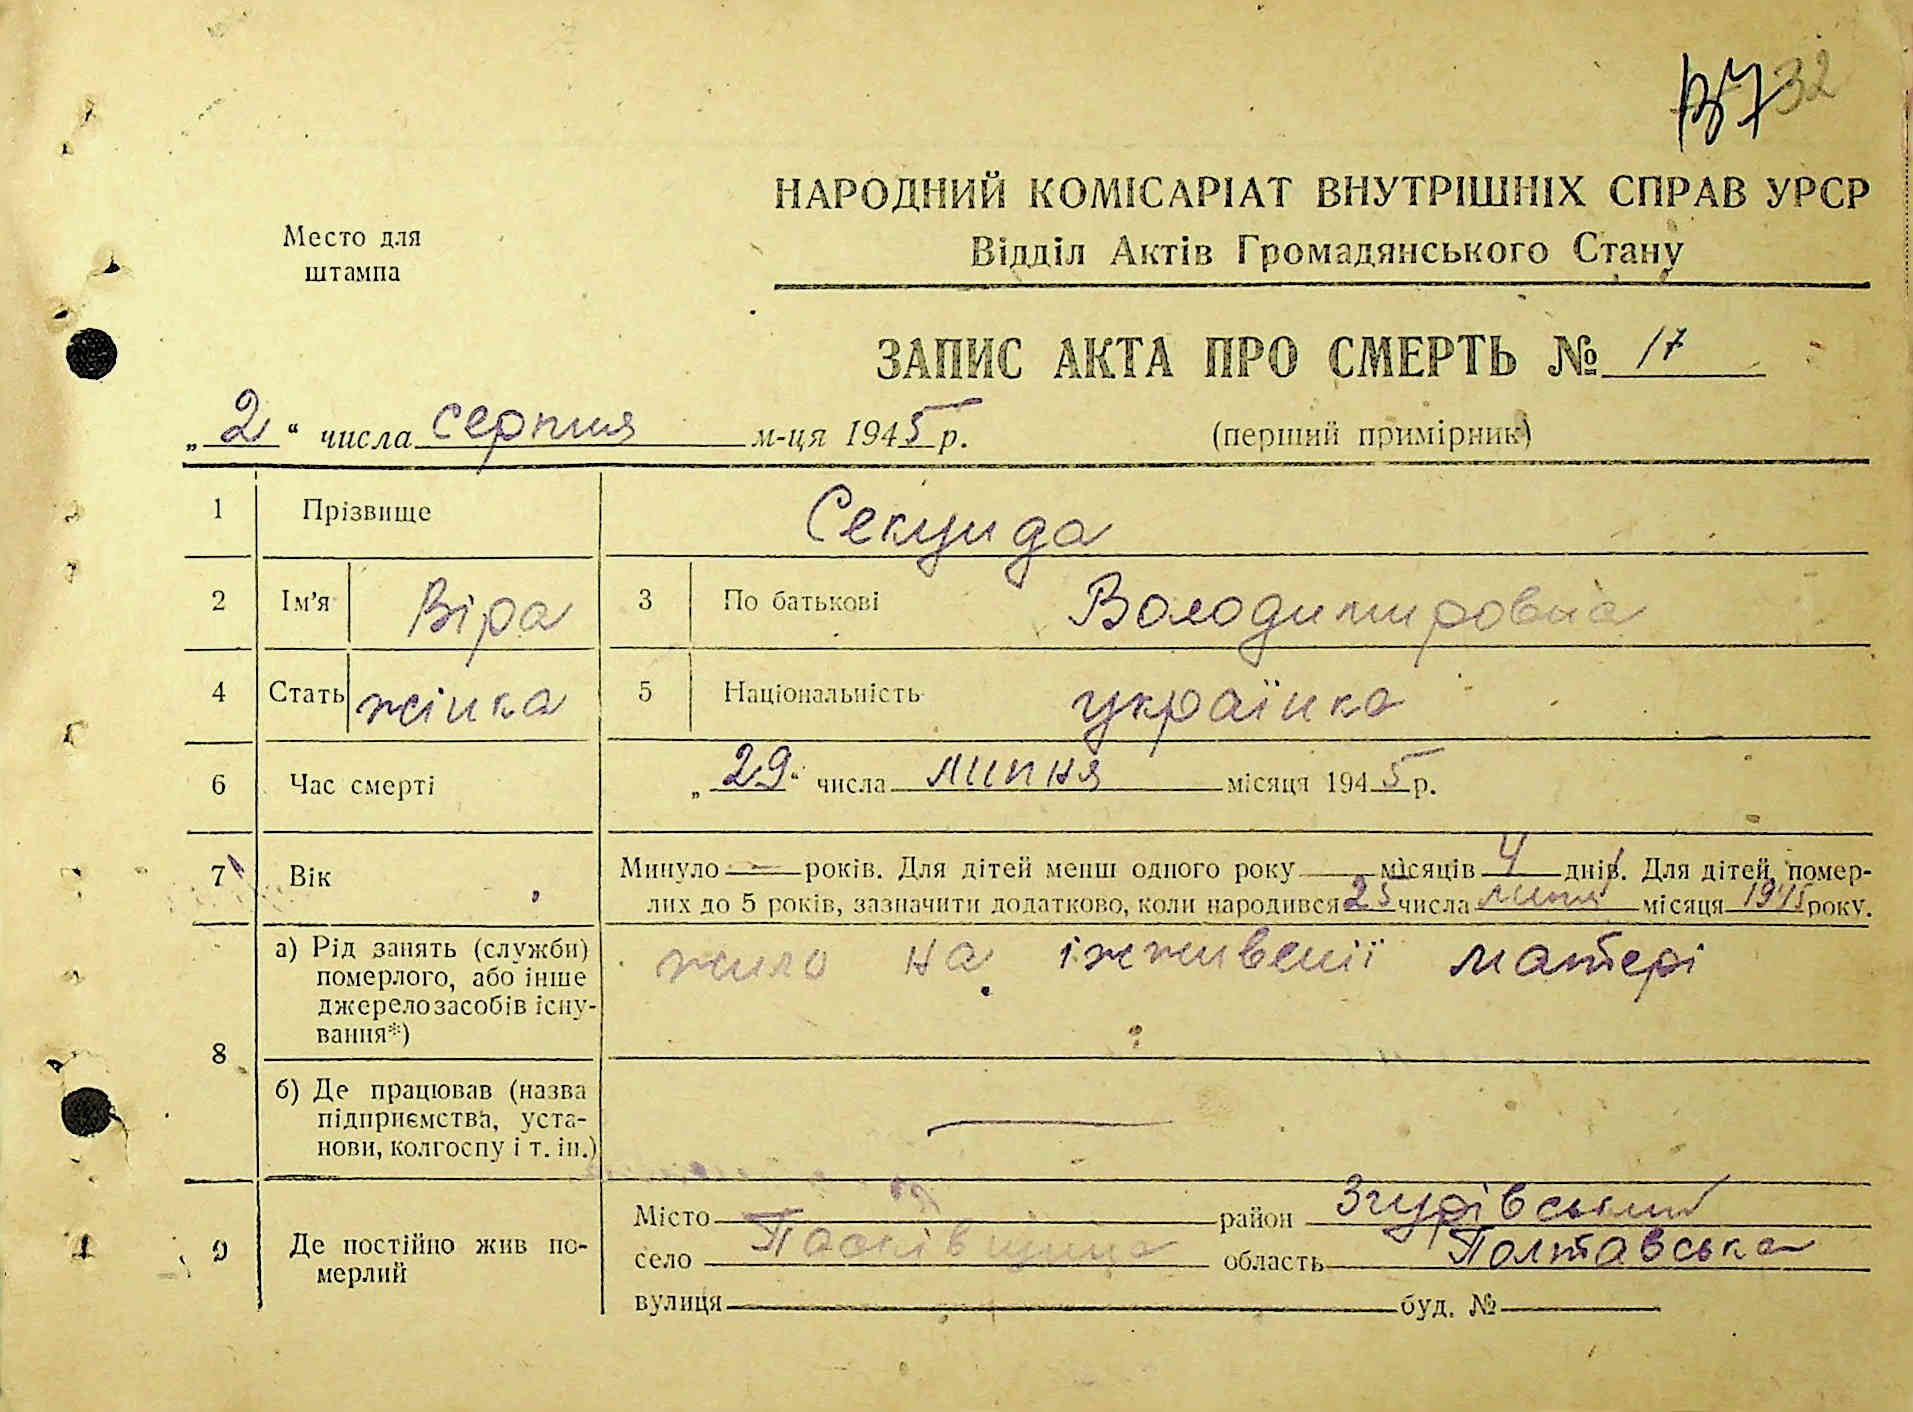 32
НАРОДНИЙ КОМІСАРІАТ ВНУТРІШНІХ СПРАВ УРСР
Відділ Актів Громадянського Стану
Место для
штампа
ЗАПИС АКТА ПРО СМЕРТЬ № 17
„2“ числа серпня м-ця 1945 р.
(перший примірник)
1 Прізвище Секунда
2 Ім'я Віра 3 По батькові Володимировна
4 Стать жінка 5 Національність українка
6 Час смерті „29“ числа липня місяця 1945 р.
7 Вік Минуло — років. Для дітей менш одного року місяців 4 днів. Для дітей, помер-
лих до 5 років, зазначити додатково, коли народився 25 числа липня місяця 1945 року.
8 а) Рід занять (служби)
померлого, або інше
джерело засобів існу-
вання*)
жило на іжживенії матері
б) Де працював (назва
підприємства, уста-
нови, колгоспу і т. ін.)
9 Де постійно жив по-
мерлий
Місто район Згурівський
село Пасківщина область Полтавська
вулиця буд. №